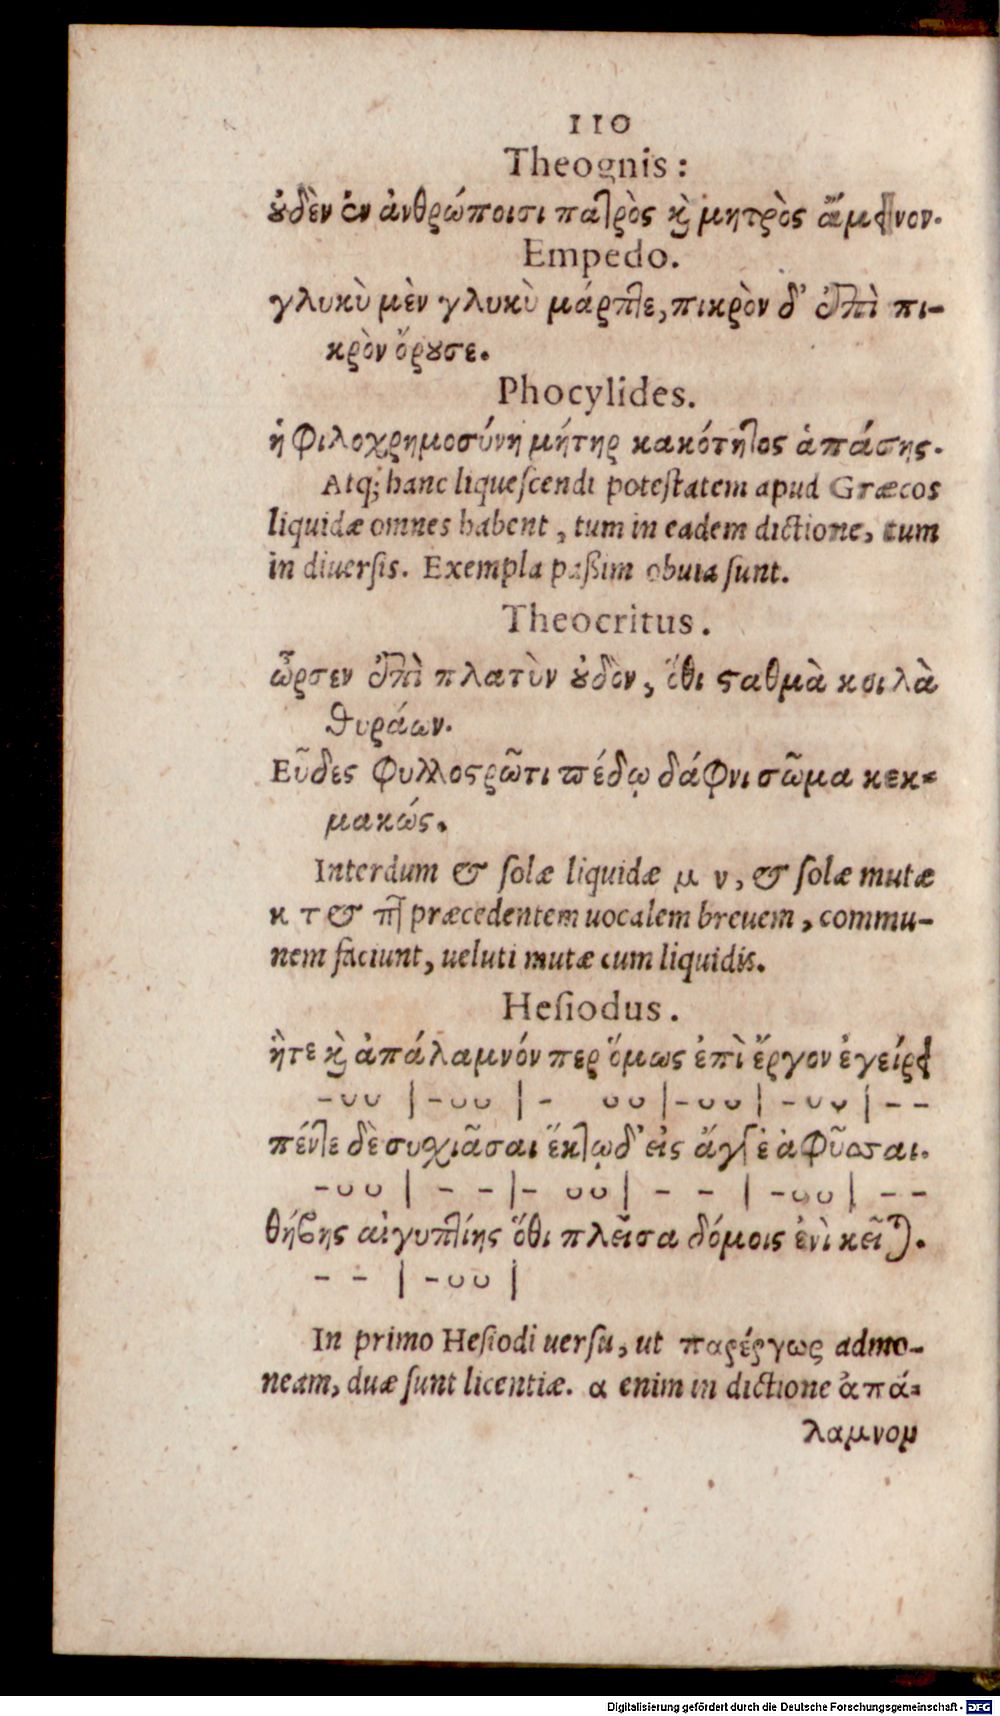 110
Theognis:
ὐδὲν ἐν ἀνθρώποισι πατρὸς κὶ μητρὸς ἄμεινον.
Empedo.
γλυκὺ μὲν γλυκὺ μάρπτε, πικρὸν δ' ἐπὶ πι-
κρὸν ὄρουσε.
Phocylides.
ἡ φιλοχρημοσύνη μήτηρ κακότητος ἁπάσης.
Atq; hanc liquescendi potestatem apud Græcos
liquidæ omnes habent, tum in eadem dictione, tum
in diuersis. Exempla paßim obuia sunt.
Theocritus.
ὦρσεν ἐπὶ πλατὺν οὐδὸν, ὅθι σταθμὰ κοιλὰ
θυράων.
Εὗδες φυλλοστρῶτι πέδῳ δάφνι σῶμα κεκ-
μακώς.
Interdum & solæ liquidæ μ ν, & solæ mutæ
κ τ & πτ præcedentem uocalem breuem, commu-
nem faciunt, ueluti mutæ cum liquidis.
Hesiodus.
ἥτε κὶ ἀπάλαμνόν περ ὅμως ἐπὶ ἔργον ἐγείρει
-υυ | -υυ | - υυ | -υυ | -υυ | --
πέντε δὲ συχιᾶσαι ἕκτῳ δ' εἰς ἄγγε' ἀφῦσσαι.
-υυ | - - | - υυ | - - | -υυ | --
θήβης αἰγυπτίης ὅθι πλεῖστα δόμοις ἐνὶ κεῖται.
- - | -υυ |
In primo Hesiodi uersu, ut παρέργως admo-
neam, duæ sunt licentiæ. α enim in dictione ἀπά-
λαμνομ
Digitalisierung gefördert durch die Deutsche Forschungsgemeinschaft - DFG